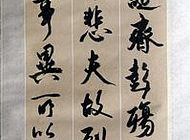 誕齊彭殤
悲夫故列
事異所以